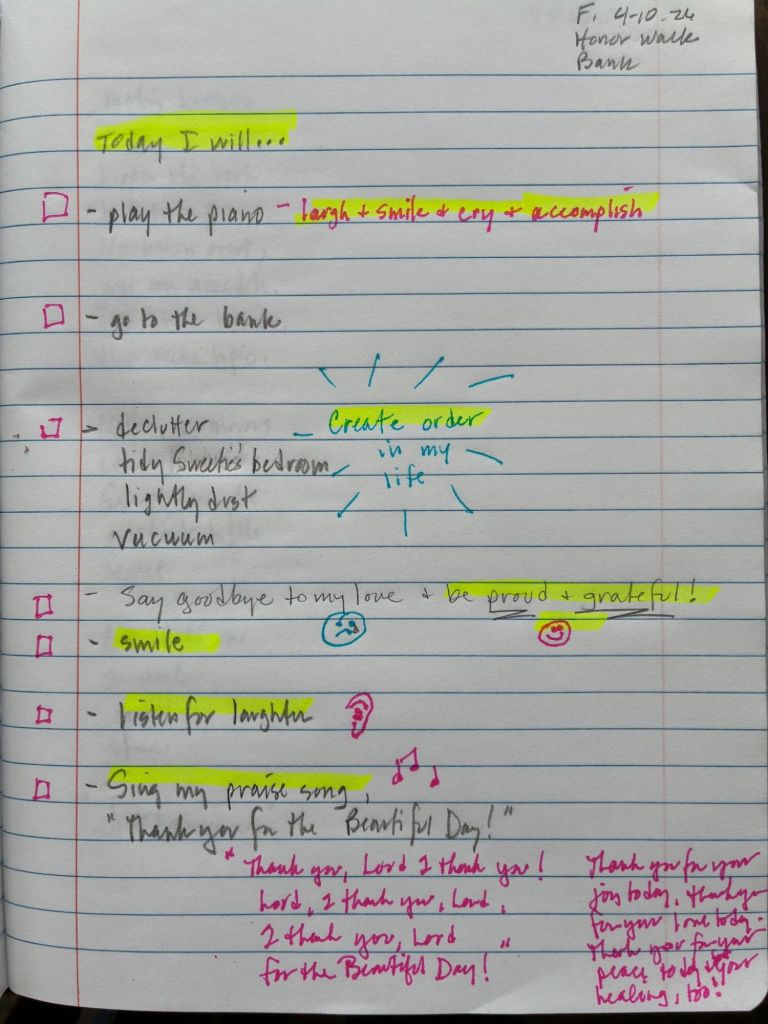 F. 4-10-26
Honor Walk
Bank
Today I will...
- play the piano - laugh + smile + cry + accomplish
- go to the bank
- declutter - Create order
tidy Sweetie's bedroom in my
lightly dust life
vacuum
- Say goodbye to my love + be proud + grateful!
- smile
- listen for laughter
- Sing my praise song,
"Thank you for the Beautiful Day!"
"Thank you, Lord I thank you!
Lord, I thank you, Lord,
I thank you, Lord
for the Beautiful Day!"
Thank you for your
joy today, thank you
for your love today.
Thank you for your
peace today + your
healing, too!